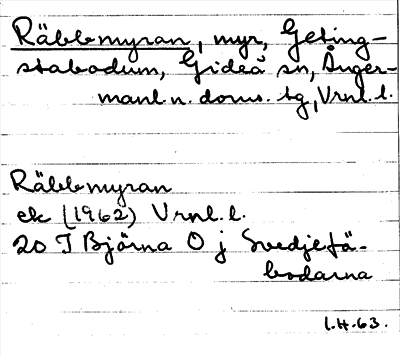 Räbbmyran, myr, Geting-
stabodum, Gideå sn, Ånger-
manl. n. doms. tg, Vrnl. l.
Räbbmyran
ek (1962) Vrnl. l.
20 I Björna O j Svedjefä-
bodarna
l.H.63.